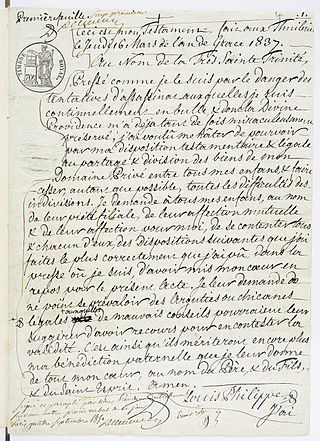 Première feuille
Ceci est mon Testament, fait aux Thuileries
le Jeudi 16 Mars de l'an de Grace 1837.
Au Nom de la Très Sainte Trinité,
Pressé comme je le suis par le danger des
tentatives d'assassinat auxquelles je suis
continuellement en butte & dont la Divine
Providence m'a déjà tant de fois miraculeusement
préservé, j'ai voulu me hâter de pourvoir
par ma disposition testamentaire & légale
au partage & division des biens de mon
Domaine Privé entre tous mes enfans, & faire
cesser, autant que possible, toutes les difficultés des
indivisions. Je demande à tous mes enfans, au nom
de leur piété filiale, de leur affection mutuelle
& de leur affection pour moi, de se contenter tous
& chacun d'eux des dispositions suivantes que j'ai
faites le plus correctement que j'ai pû, dans la
presse où je suis, d'avoir mis mon cœur en
repos par le présent Acte. Je leur demande de
ne point se prévaloir des arguties ou chicanes
légales auxquelles de mauvais conseils pourraient leur
suggérer d'avoir recours pour en contester la
validité. C'est ainsi qu'ils mériteront encore plus
ma bénédiction paternelle que je leur donne
de tout mon cœur, au nom du Père, & du Fils,
& du Saint Esprit. Amen.
Louis Philippe